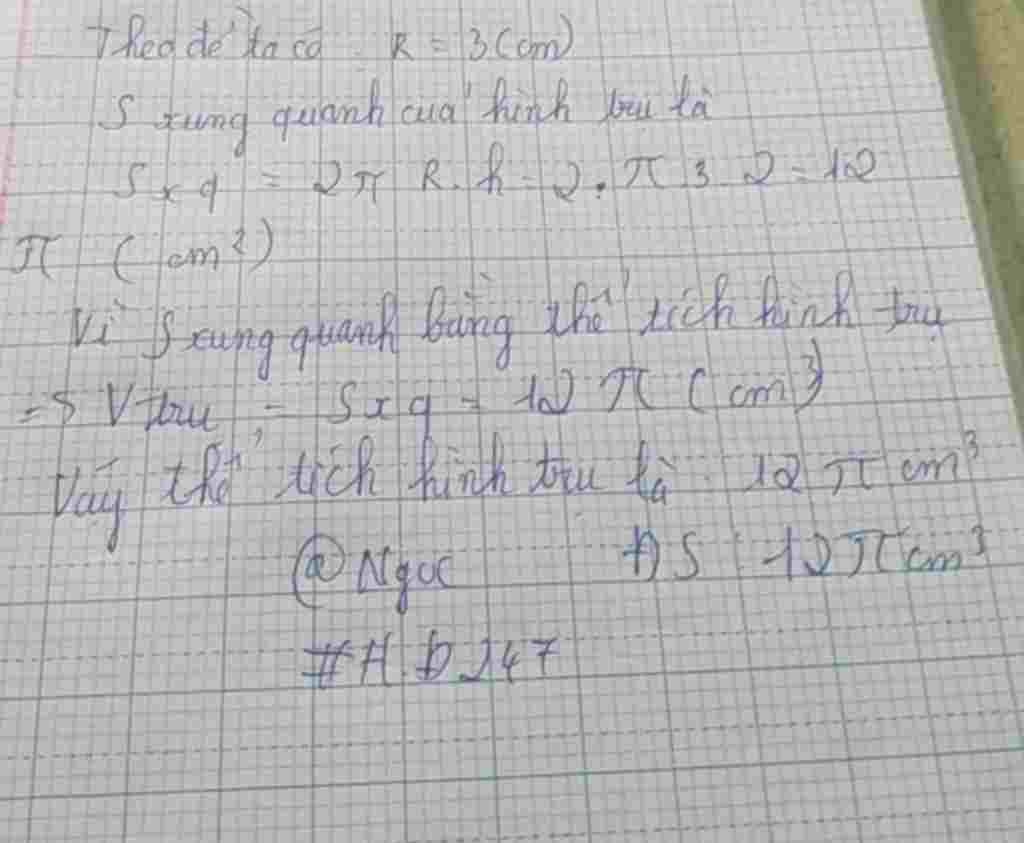 Theo đề ta có R = 3 (cm)
S xung quanh của hình trụ là
Sxq = 2π R. h = 2. π 3 2 = 12
π (cm²)
Vì S xung quanh bằng thể tích hình trụ
=> V trụ = Sxq = 12 π (cm³)
Vậy thể tích hình trụ là 12 π cm³
@Ngoc ĐS : 12 π cm³
#H.D247